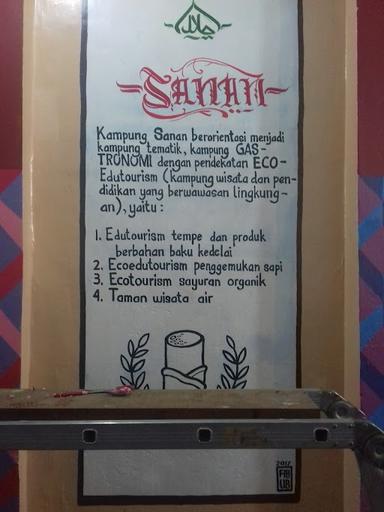 حلال
SANAN
Kampung Sanan berorientasi menjadi
kampung tematik, kampung GAS-
TRONOMI dengan pendekatan ECO-
Edutourism (kampung wisata dan pen-
didikan yang berwawasan lingkung-
an), yaitu :
1. Edutourism tempe dan produk
berbahan baku kedelai
2. Ecoedutourism penggemukan sapi
3. Ecotourism sayuran organik
4. Taman wisata air
2017
FIB
UB